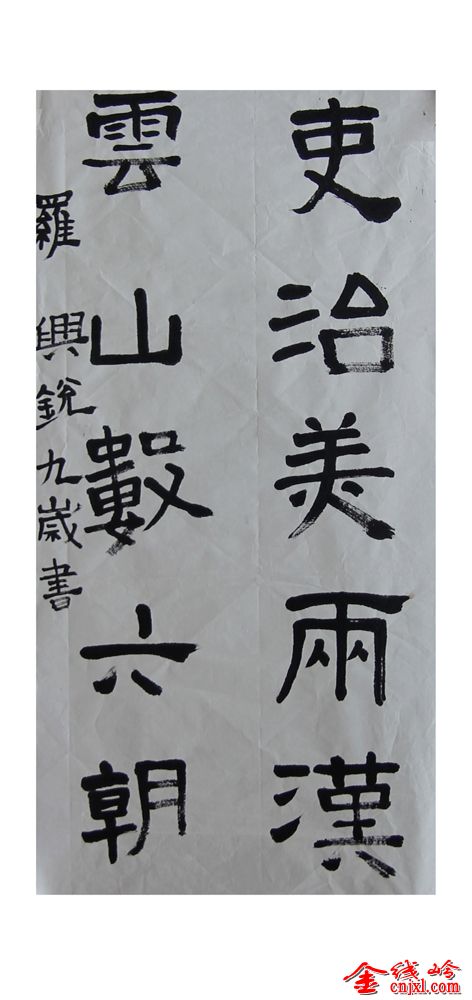 吏治美兩漢
雲山數六朝
羅興銳九歲書
金线岭
cnjxl.com